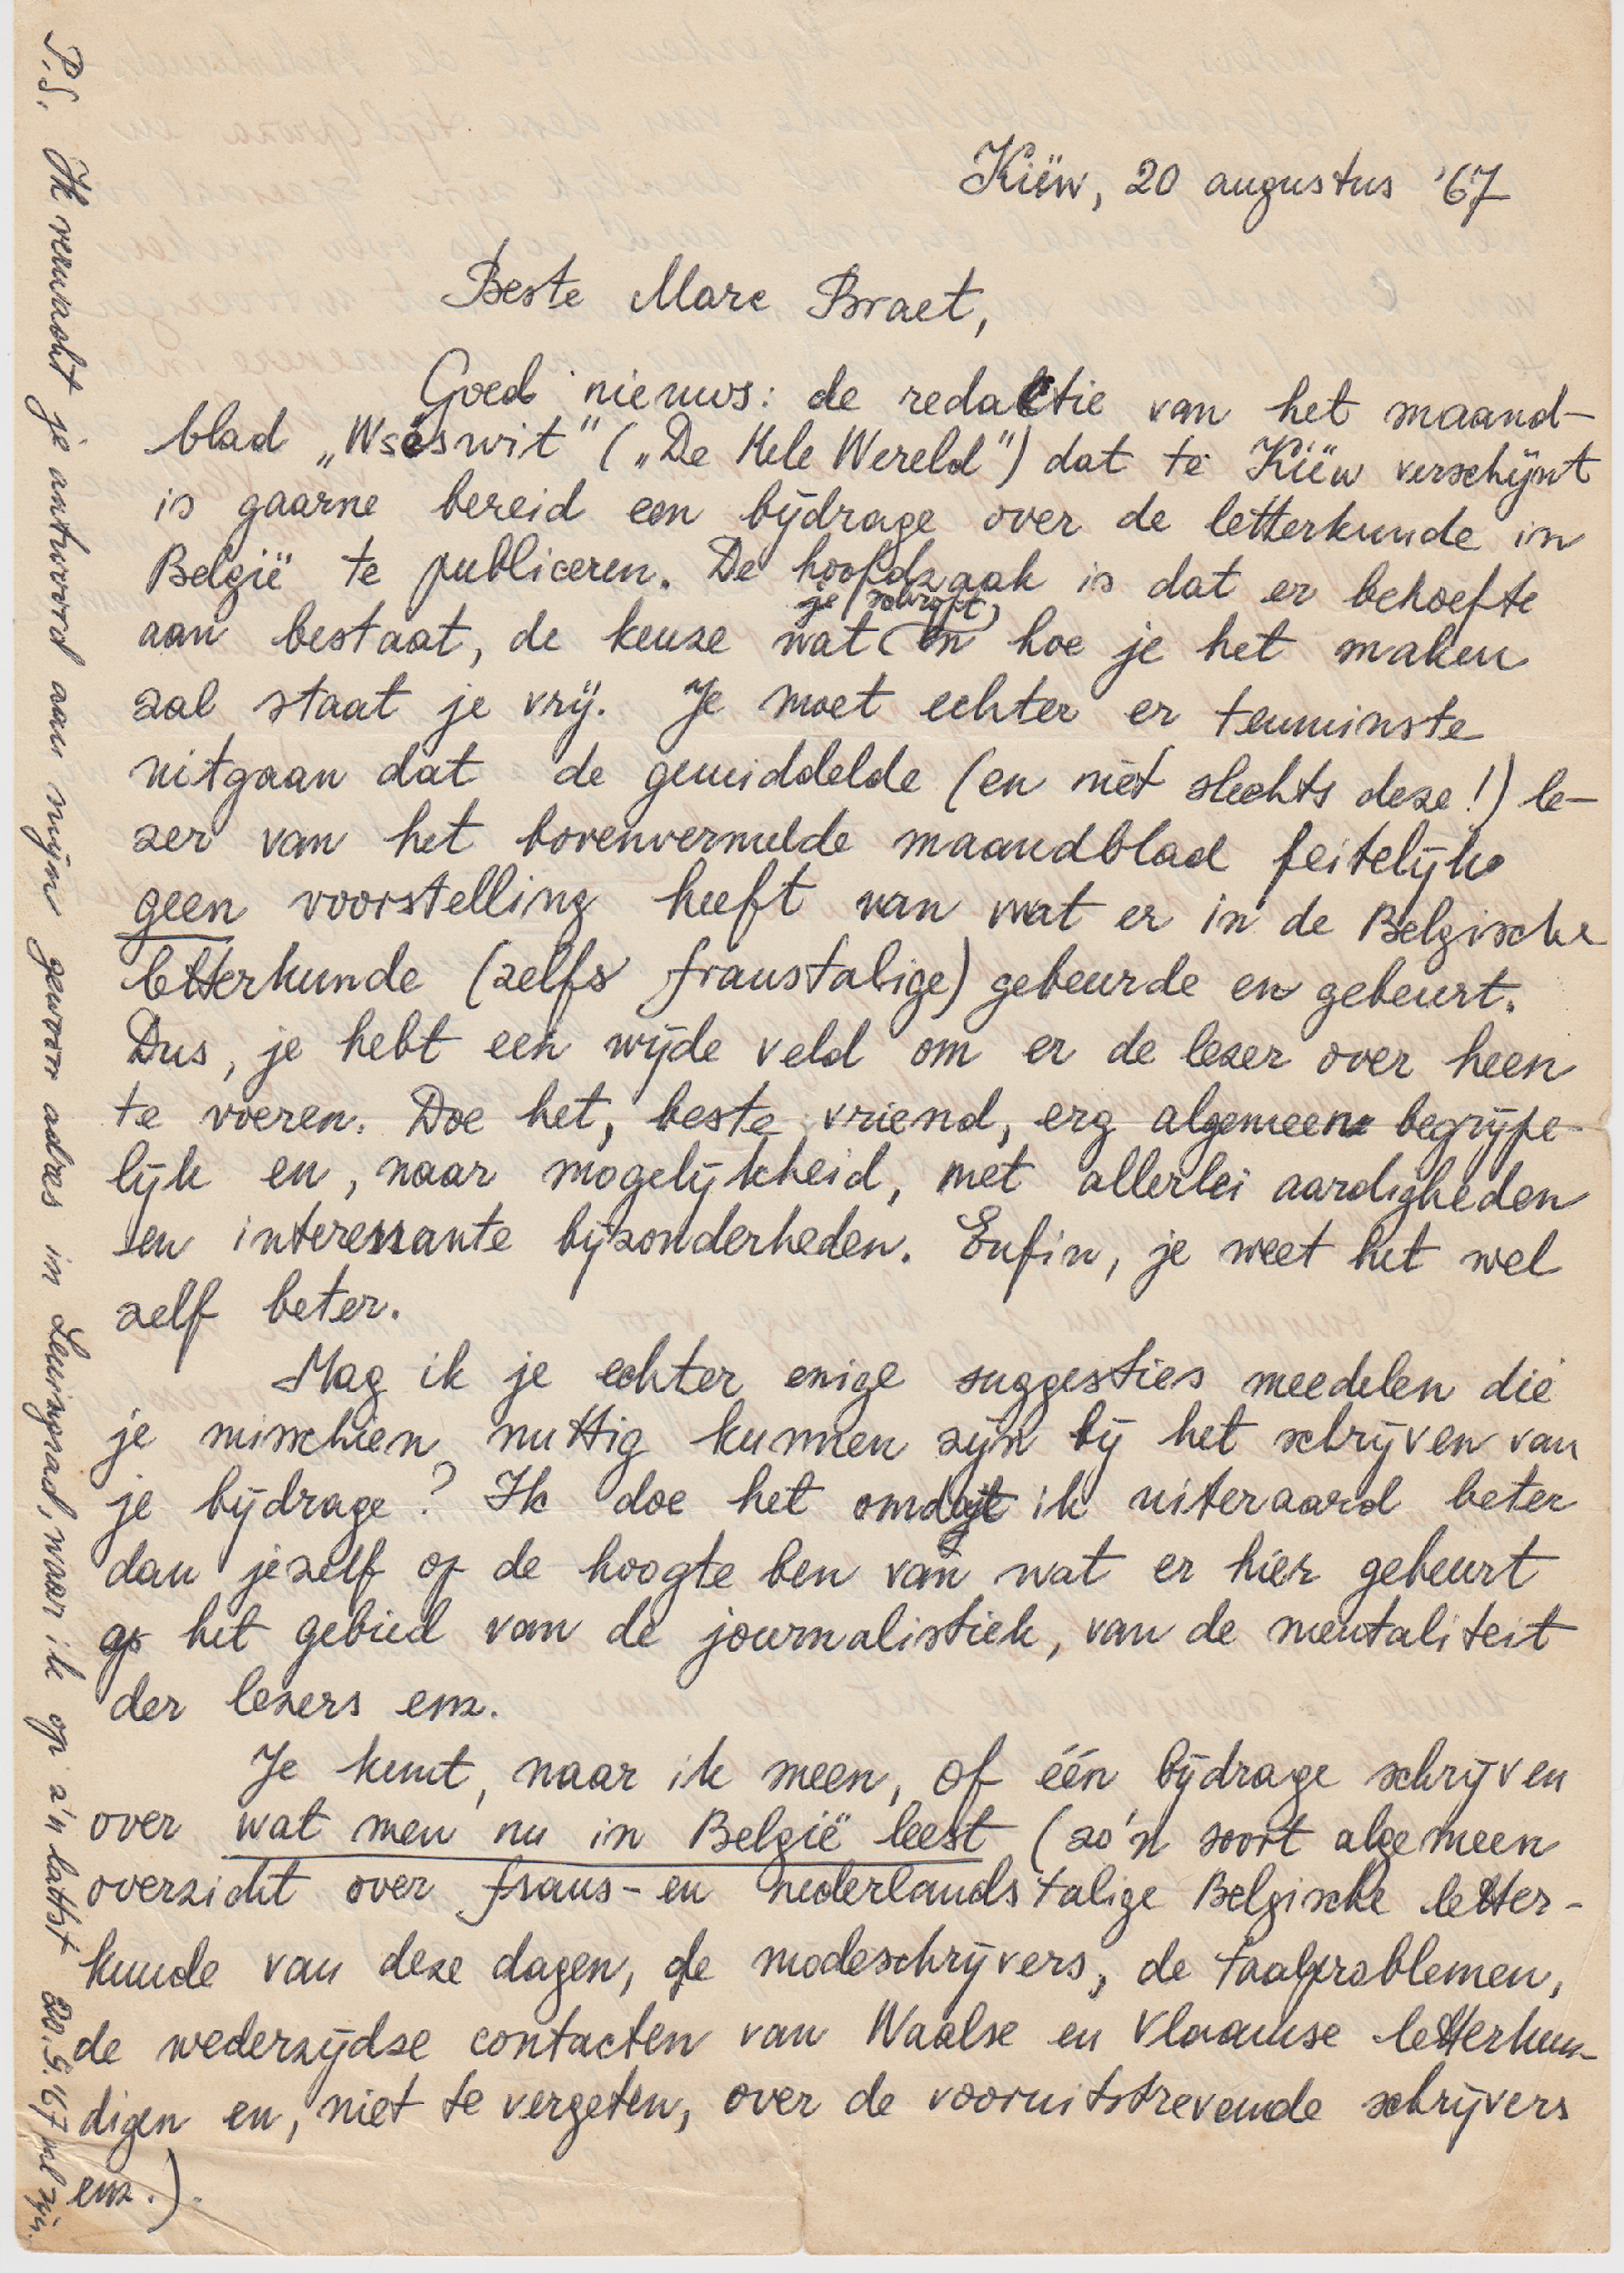 Kiëw, 20 augustus '67
Beste Marc Braet,
Goed nieuws: de redaktie van het maand-
blad „Wseswit" („De Hele Wereld") dat te Kiëw verschijnt
is gaarne bereid een bijdrage over de letterkunde in
België te publiceren. De hoofdzaak is dat er behoefte
je schrijft,
aan bestaat, de keuze wat en hoe je het maken
zal staat je vrij. Je moet echter er tenminste
uitgaan dat de gemiddelde (en niet slechts deze!) le-
zer van het bovenvermelde maandblad feitelijk
geen voorstelling heeft van wat er in de Belgische
letterkunde (zelfs franstalige) gebeurde en gebeurt.
Dus, je hebt een wijde veld om er de lezer over heen
te voeren. Doe het, beste vriend, erg algemeen begrijpe-
lijk en, naar mogelijkheid, met allerlei aardigheden
en interessante bijzonderheden. Enfin, je weet het wel
zelf beter.
Mag ik je echter enige suggesties meedelen die
je misschien nuttig kunnen zijn bij het schrijven van
je bijdrage? Ik doe het omdat ik uiteraard beter
dan jezelf op de hoogte ben van wat er hier gebeurt
op het gebied van de journalistiek, van de mentaliteit
der lezers enz.
Je kunt, naar ik meen, of één bijdrage schrijven
over wat men nu in België leest (zo'n soort algemeen
overzicht over frans- en nederlandstalige Belgische letter-
kunde van deze dagen, de modeschrijvers, de taalproblemen,
de wederzijdse contacten van Waalse en Vlaamse letterkun-
digen en, niet te vergeten, over de vooruitstrevende schrijvers
enz.).
P.S. Ik verwacht je antwoord aan mijn gewoon adres in Leningrad, waar ik op z'n laatst 20.9.67 zal zijn.